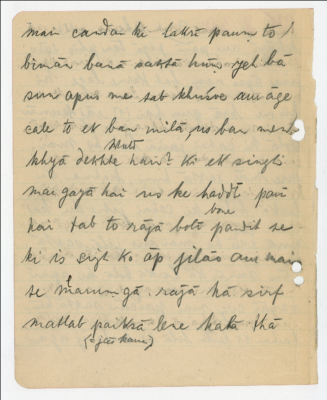 mai candan ki lakṛī pāuṃ to
bimān banā saktā hūṃ yeh bā
sun apus me sab khuśve aur āge
cale to ek ban milā, us ban meṃ
kkyā dekhte haiṃ? ki ek singh
mar gayā hai us ke haddī paṛī
hai tab to rājā bole paṇḍit se
ki is ko āp jilāo aur main
se mārūṃ gā. rājā kā sirf
matlab parikṣā lene kahā thā